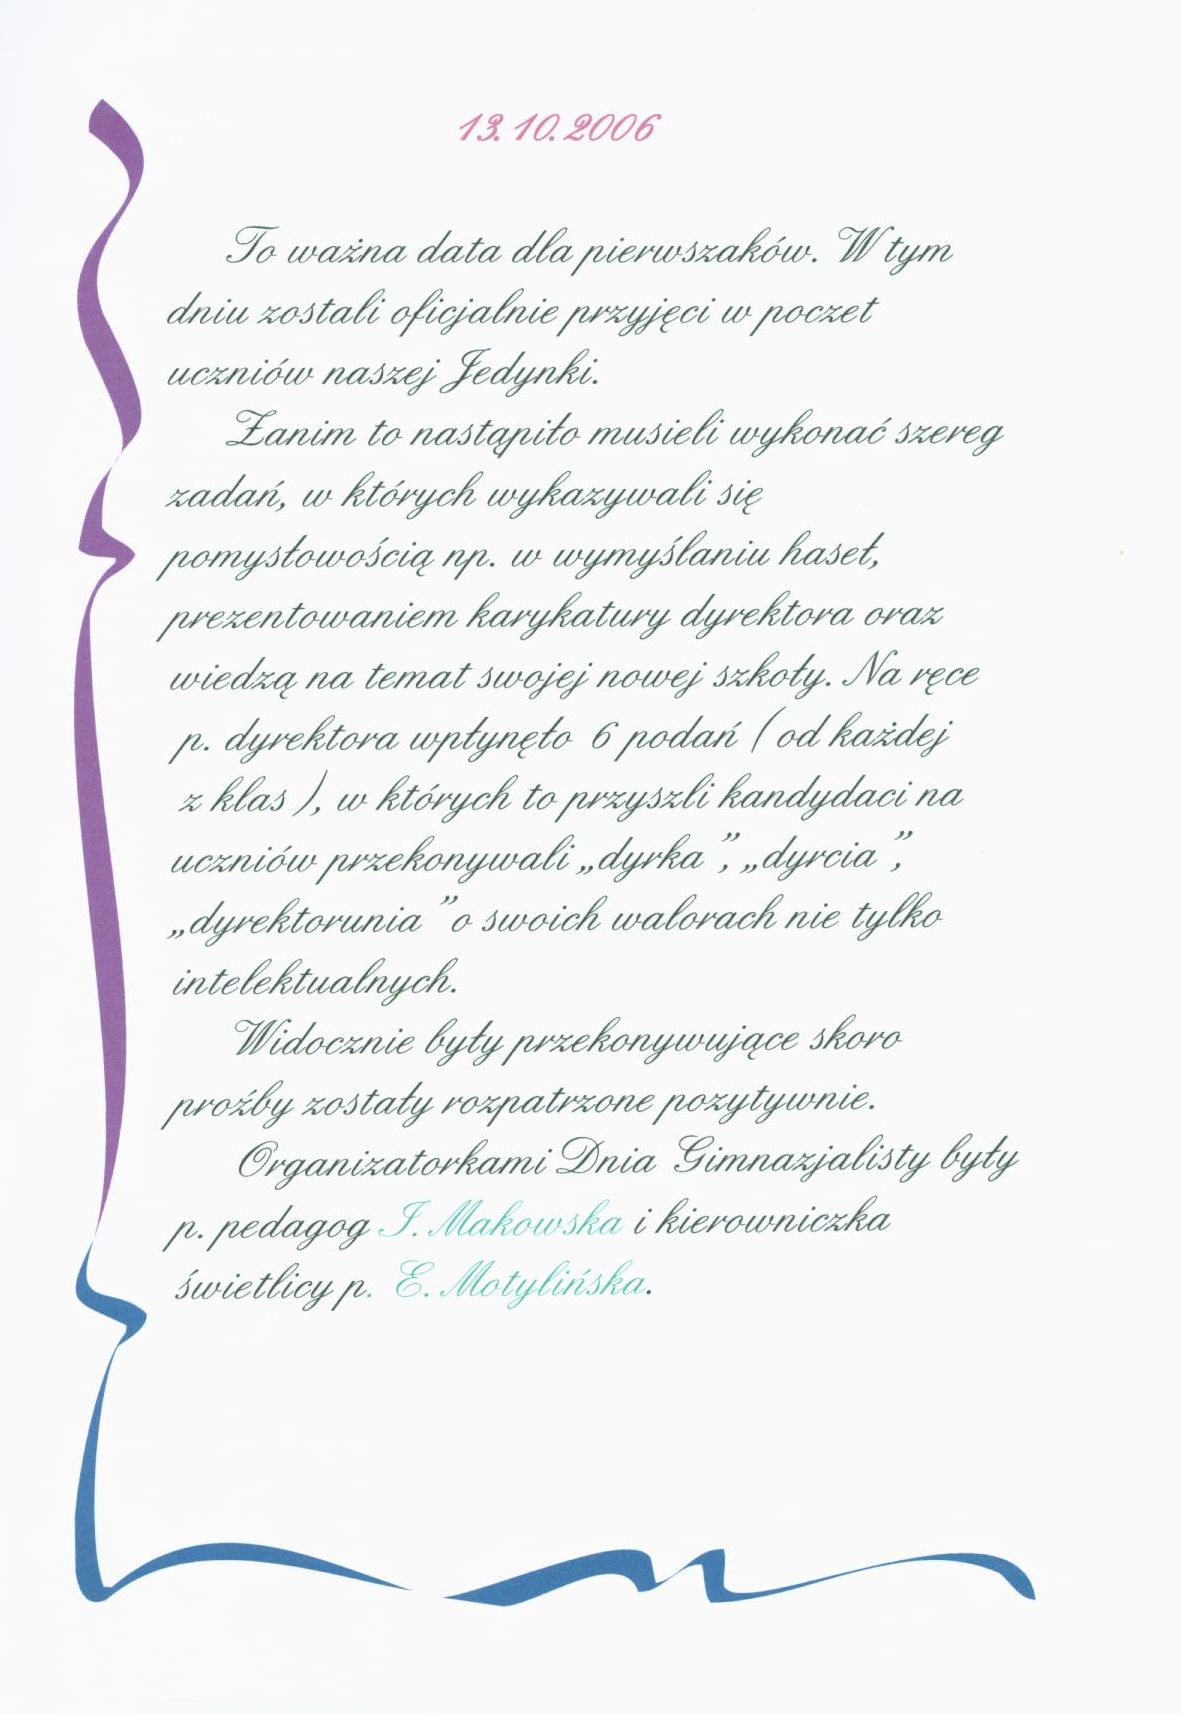 13.10.2006
To ważna data dla pierwszaków. W tym
dniu zostali oficjalnie przyjęci w poczet
uczniów naszej Jedynki.
Zanim to nastąpiło musieli wykonać szereg
zadań, w których wykazywali się
pomysłowością np. w wymyślaniu haseł,
prezentowaniem karykatury dyrektora oraz
wiedzą na temat swojej nowej szkoły. Na ręce
p. dyrektora wpłynęło 6 podań ( od każdej
z klas ), w których to przyszli kandydaci na
uczniów przekonywali „dyrka”, „dyrcia”,
„dyrektorunia” o swoich walorach nie tylko
intelektualnych.
Widocznie były przekonywujące skoro
proźby zostały rozpatrzone pozytywnie.
Organizatorkami Dnia Gimnazjalisty były
p. pedagog I. Makowska i kierowniczka
świetlicy p. E. Motylińska.